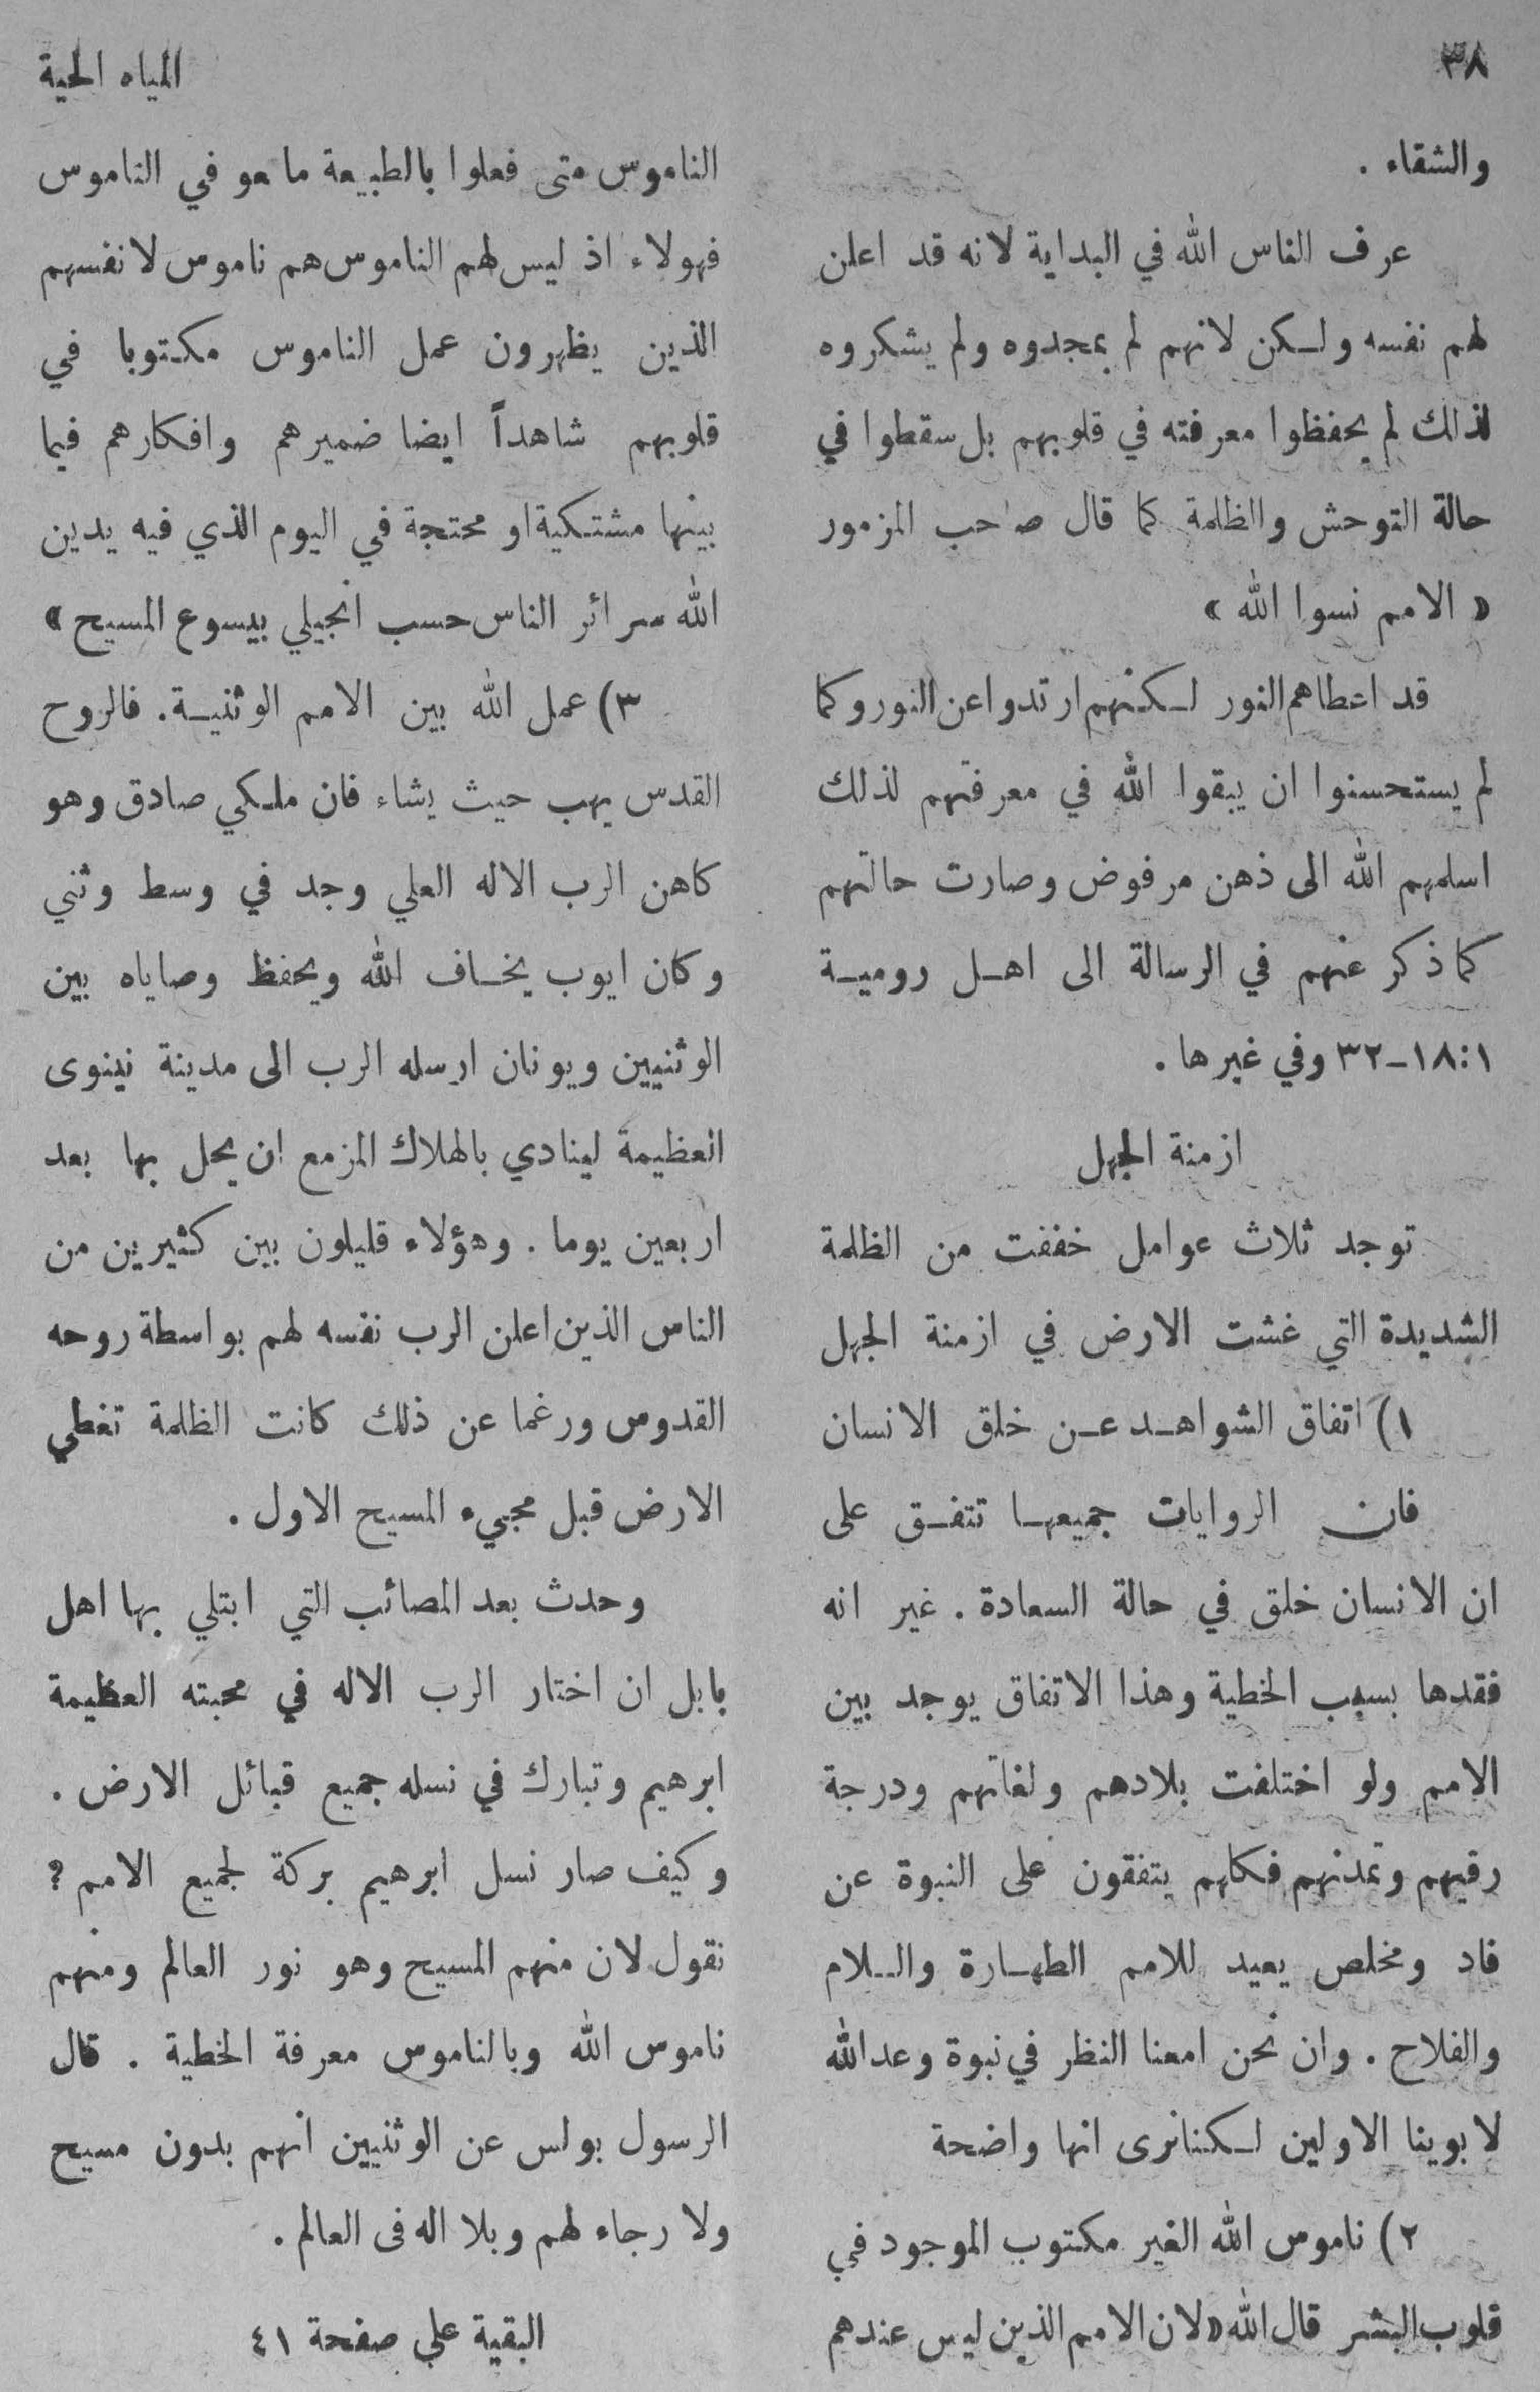 ٣٨
المياه الحية
والشقاء .
عرف الناس الله في البداية لانه قد اعلن
لهم نفسه ولكن لانهم لم يمجدوه ولم يشكروه
لذلك لم يحفظوا معرفته في قلوبهم بل سقطوا في
حالة التوحش والظلمة كما قال صاحب المزمور
« الامم نسوا الله »
قد اعطاهم النور لكنهم ارتدوا عن النور وكما
لم يستحسنوا ان يبقوا الله في معرفتهم لذلك
اسلمهم الله الى ذهن مرفوض وصارت حالتهم
كما ذكر عنهم في الرسالة الى اهل رومية
١:١٨-٣٢ وفي غيرها .
ازمنة الجهل
توجد ثلاث عوامل خففت من الظلمة
الشديدة التي غشت الارض في ازمنة الجهل
١) اتفاق الشواهد عن خلق الانسان
فان الروايات جميعها تتفق على
ان الانسان خلق في حالة السعادة . غير انه
فقدها بسبب الخطية وهذا الاتفاق يوجد بين
الامم ولو اختلفت بلادهم ولغاتهم ودرجة
رقيهم وتمدنهم فكلهم يتفقون على النبوة عن
فاد ومخلص يعيد للامم الطهارة والسلام
والفلاح . وان نحن امعنا النظر في نبوة وعد الله
لابوينا الاولين لكنا نرى انها واضحة
٢) ناموس الله الغير مكتوب الموجود في
قلوب البشر قال الله «لان الامم الذين ليس عندهم
الناموس متى فعلوا بالطبيعة ما هو في الناموس
فهولاء اذ ليس لهم الناموس هم ناموس لانفسهم
الذين يظهرون عمل الناموس مكتوبا في
قلوبهم شاهداً ايضا ضميرهم وافكارهم فيما
بينها مشتكية او محتجة في اليوم الذي فيه يدين
الله سرائر الناس حسب انجيلي بيسوع المسيح »
٣) عمل الله بين الامم الوثنية. فالروح
القدس يهب حيث يشاء فان ملكي صادق وهو
كاهن الرب الاله العلي وجد في وسط وثني
وكان ايوب يخاف الله ويحفظ وصاياه بين
الوثنيين ويونان ارسله الرب الى مدينة نينوى
العظيمة لينادي بالهلاك المزمع ان يحل بها بعد
اربعين يوما . وهؤلاء قليلون بين كثيرين من
الناس الذين اعلن الرب نفسه لهم بواسطة روحه
القدوس ورغما عن ذلك كانت الظلمة تغطي
الارض قبل مجيء المسيح الاول .
وحدث بعد المصائب التي ابتلي بها اهل
بابل ان اختار الرب الاله في محبته العظيمة
ابرهيم وتبارك في نسله جميع قبائل الارض .
وكيف صار نسل ابرهيم بركة لجميع الامم ؟
نقول لان منهم المسيح وهو نور العالم ومنهم
ناموس الله وبالناموس معرفة الخطية . قال
الرسول بولس عن الوثنيين انهم بدون مسيح
ولا رجاء لهم وبلا اله فى العالم .
البقية علي صفحة ٤١